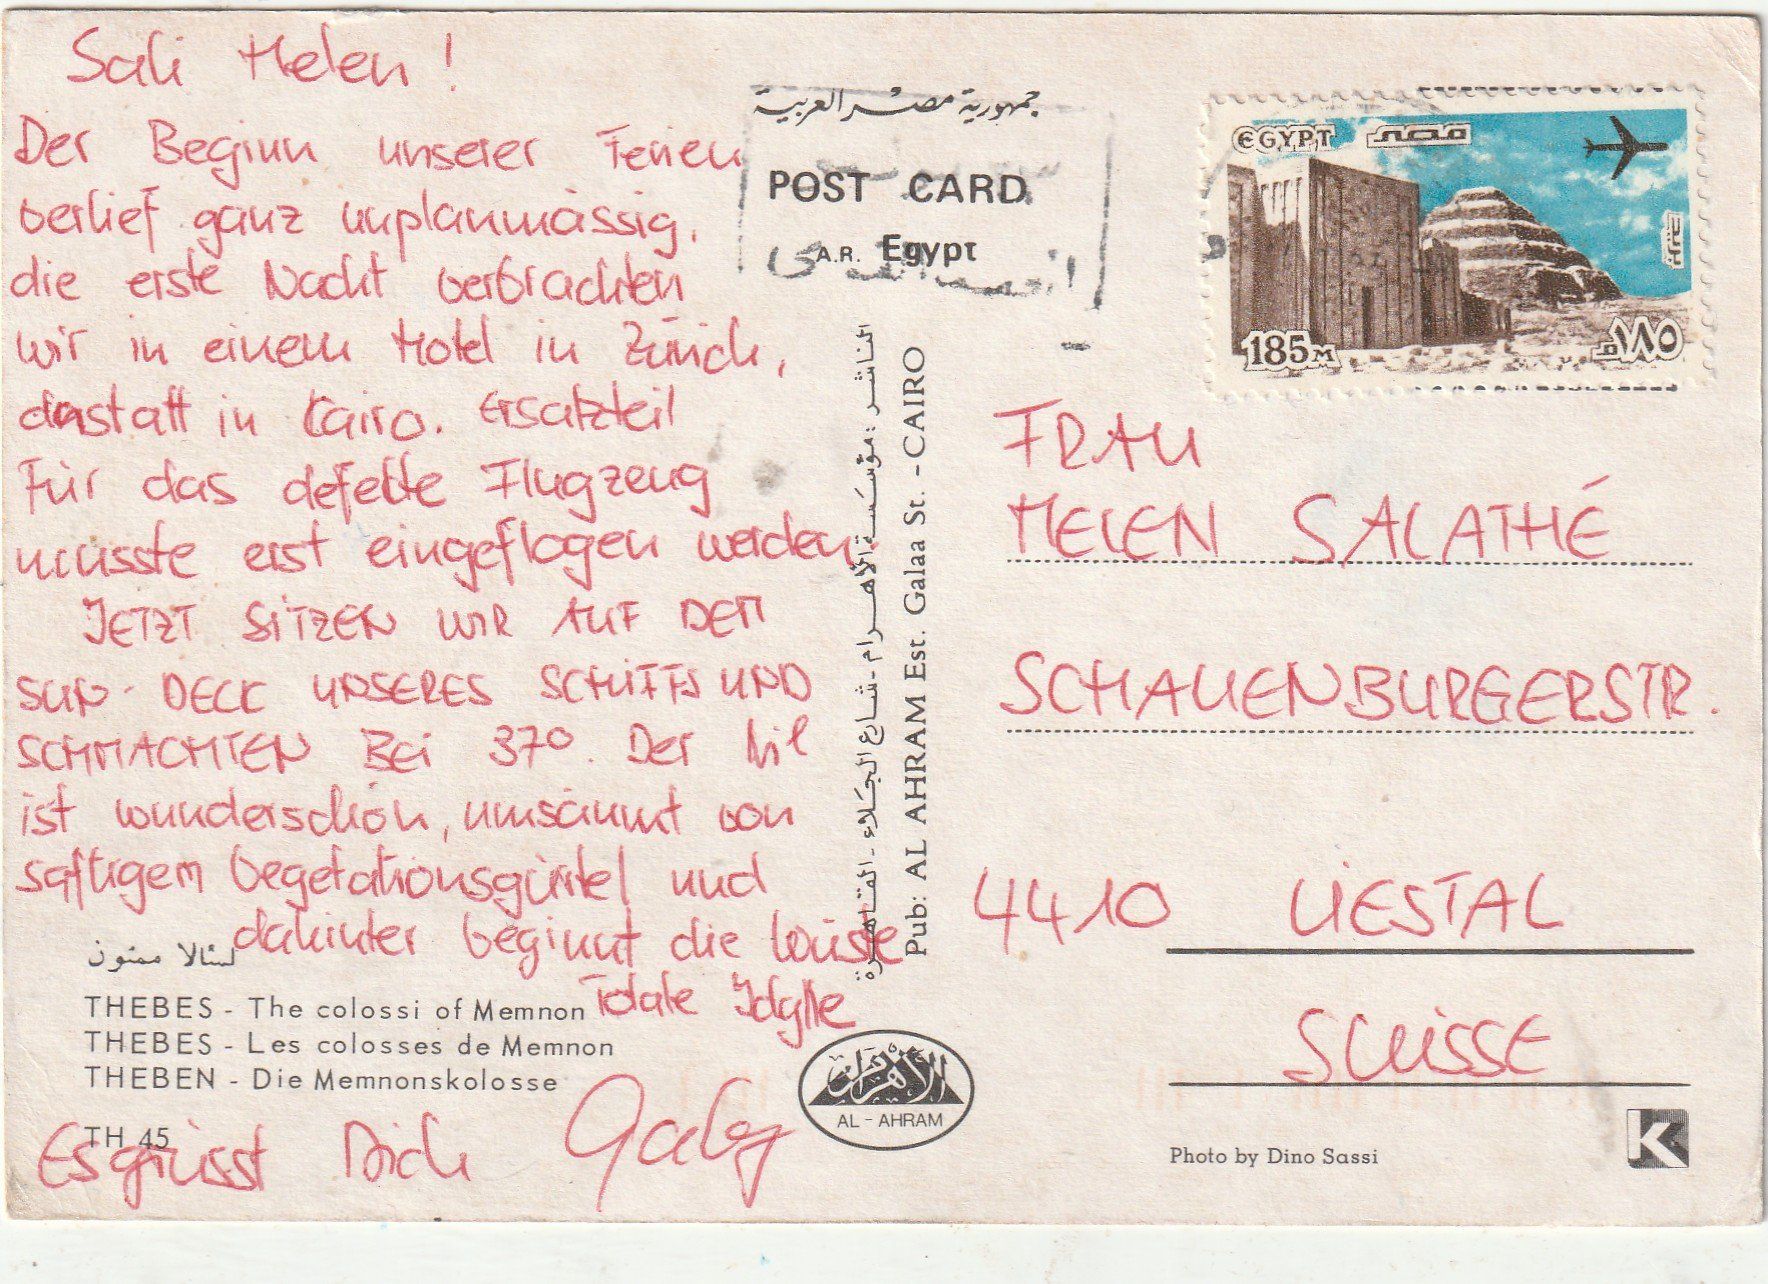 Sali Helen!
Der Beginn unserer Ferien
verlief ganz unplanmässig,
die erste Nacht verbrachten
wir in einem Hotel in Zürich,
anstatt in Cairo. Ersatzteil
Für das defekte Flugzeug
musste erst eingeflogen werden.
JETZT SITZEN WIR AUF DEM
SUN-DECK UNSERES SCHIFFS UND
SCHMACHTEN Bei 37°. Der Nil
ist wunderschön, umsäumt von
saftigem Vegetationsgürtel und
dahinter beginnt die Wüste
Totale Idylle
Es grüsst Dich Gaby
تمثالا ممنون
THEBES - The colossi of Memnon
THEBES - Les colosses de Memnon
THEBEN - Die Memnonskolosse
TH 45
جمهورية مصر العربية
POST CARD
A.R. Egypt
الناشر : مؤسسة الأهرام - شارع الجلاء - القاهرة
Pub: AL AHRAM Est. Galaa St. - CAIRO
الأهرام
AL - AHRAM
EGYPT مصر
185M
١٨٥م
FRAU
HELEN SALATHÉ
SCHAUENBURGERSTR.
4410 LIESTAL
SUISSE
Photo by Dino Sassi
K